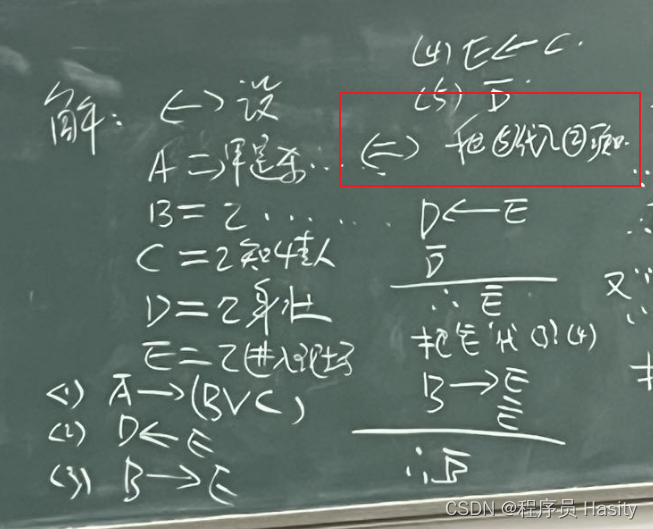 解：(一)设
A=甲是杀……
B=乙……
C=乙知情人
D=乙身壮
E=乙进入现场
(1) A→(B∨C)
(2) D←E
(3) B→E
(4) E←C.
(5) D̅
(二) 把⑤代入②项
D←E
D̅
∴E̅
把E̅代(3)(4)
B→E
E̅
∴B̅
又∵
CSDN @程序员 Hasity